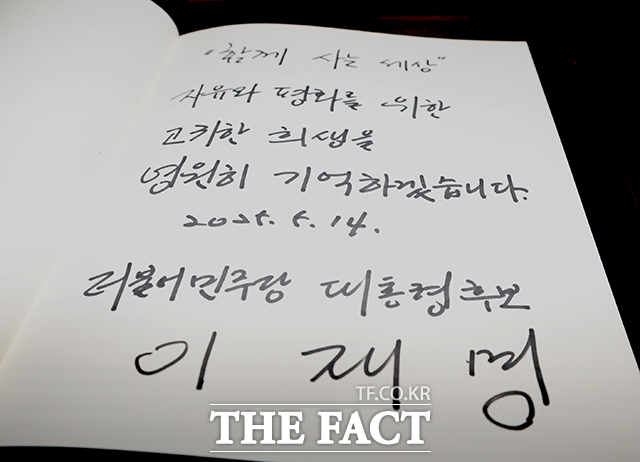 "함께 사는 세상"
자유와 평화를 위한
고귀한 희생을
영원히 기억하겠습니다.
2025. 5. 14.
더불어민주당 대통령후보
이 재 명
TF.CO.KR
THE FACT